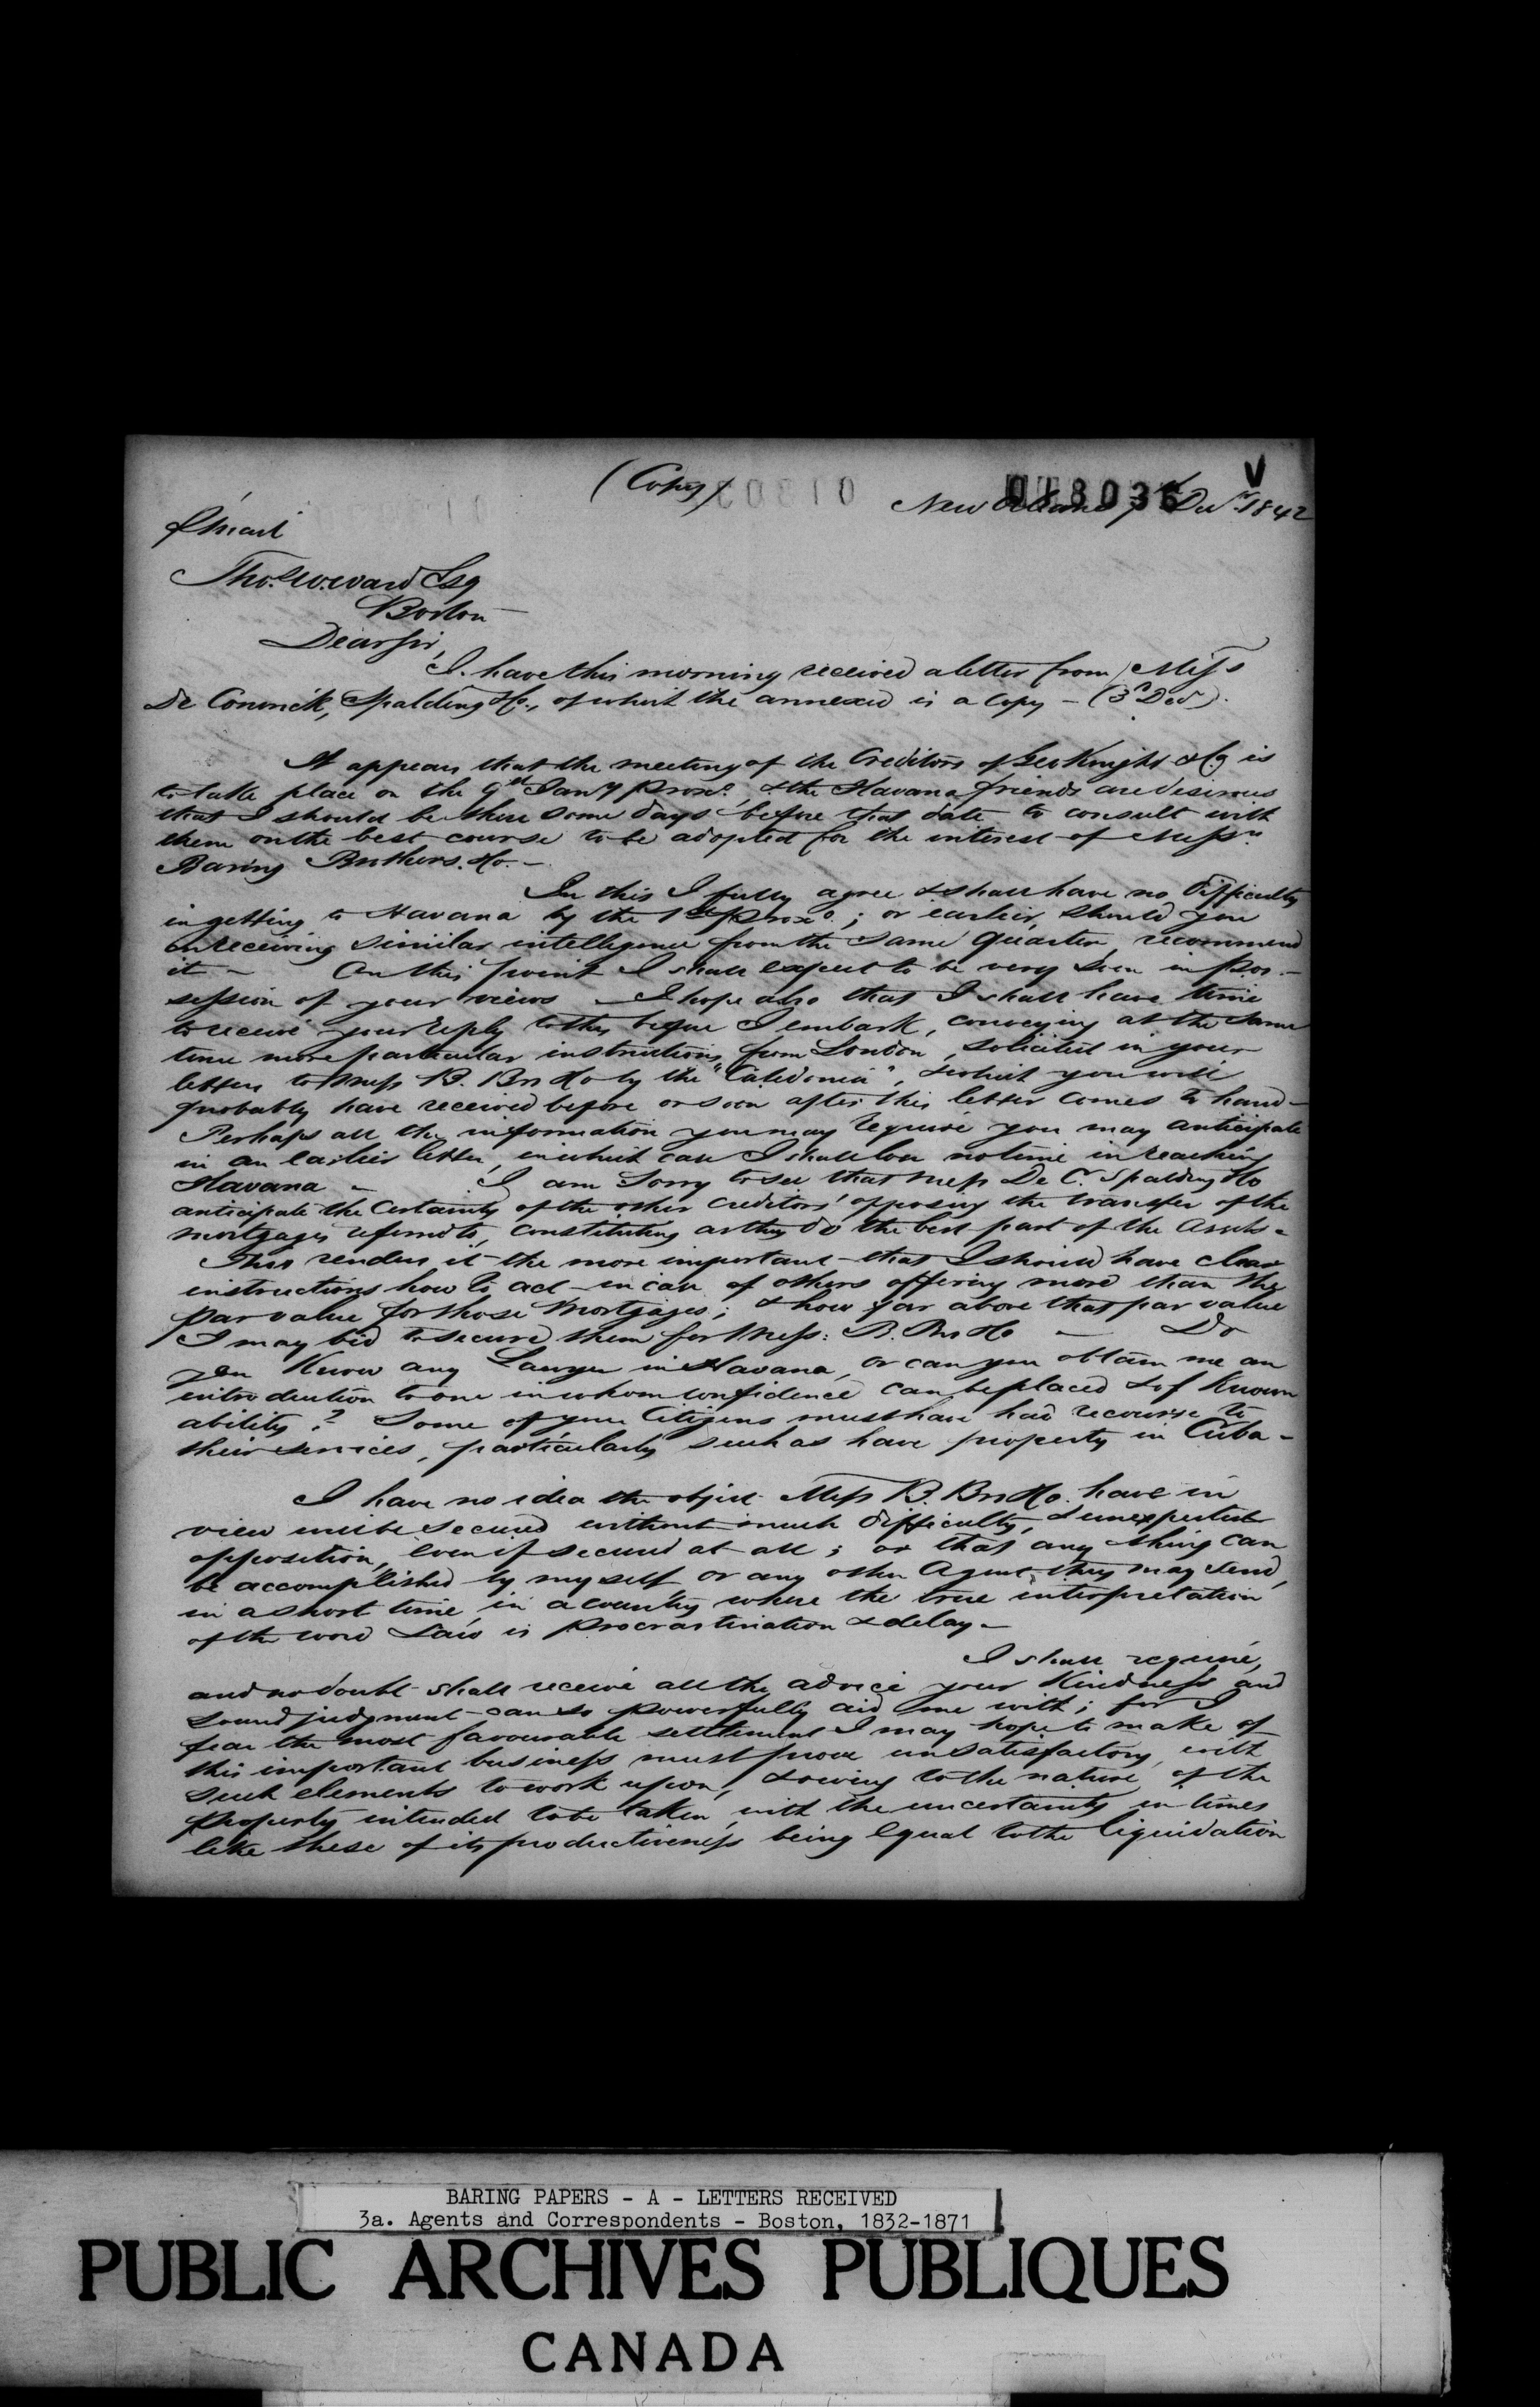 (Copy)
018036
V
New Orleans 7th Decr. 1842
p mail
Thos. W. Ward Esq
Boston –
Dear Sir,
I have this morning received a letter from Mess
De Coninck, Spalding & Co., of which the annexed is a copy – (3d Decr).
It appears that the meeting of the Creditors of Geo Knight & Co is
to take place on the 9th Jany proxo. & the Havana friends are desirous
that I should be there some days before that date to consult with
them on the best course to be adopted for the interest of Messrs.
Baring Brothers & Co. –
In this I fully agree & shall have no difficulty
in getting to Havana by the 1st proxo.; or earlier, should you
on receiving similar intelligence from the same quarter, recommend
it – On this point I shall expect to be very soon in pos-
session of your views – I hope also that I shall have time
to receive your reply to this before I embark, conveying at the same
time more particular instructions from London, solicited in your
letters to Mess B. Brs & Co by the "Caledonia", & which you will
probably have received before or soon after this letter comes to hand –
Perhaps all the information you may require you may anticipate
in an earlier letter, in which case I shall lose no time in reaching
Havana – I am sorry to see that Mess De C. Spalding & Co
anticipate the certainty of the other creditors' opposing the transfer of the
mortgages referred to, constituting as they do the best part of the assets –
This renders it the more important that I should have clear
instructions how to act in case of others offering more than the
par value for those Mortgages; & how far above that par value
I may bid to secure them for Mess: B. Brs & Co – Do
you know any Lawyer in Havana, or can you obtain me an
introduction to one in whom confidence can be placed & of known
ability? Some of your Citizens must have had recourse to
their services, particularly such as have property in Cuba –
I have no idea the object Mess B. Brs & Co. have in
view will be secured without much difficulty, & unexpected
opposition, even if secured at all; or that any thing can
be accomplished by myself or any other Agent they may send,
in a short time, in a country where the true interpretation
of the word Law is procrastination & delay –
I shall require,
and no doubt shall receive all the advice your kindness and
sound judgment can so powerfully aid me with; for I
fear the most favourable settlement I may hope to make of
this important business must prove unsatisfactory, with
such elements to work upon, & owing to the nature of the
property intended to be taken, with the uncertainty in times
like these of its productiveness being equal to the liquidation
BARING PAPERS - A - LETTERS RECEIVED
3a. Agents and Correspondents - Boston, 1832-1871
PUBLIC ARCHIVES PUBLIQUES
CANADA